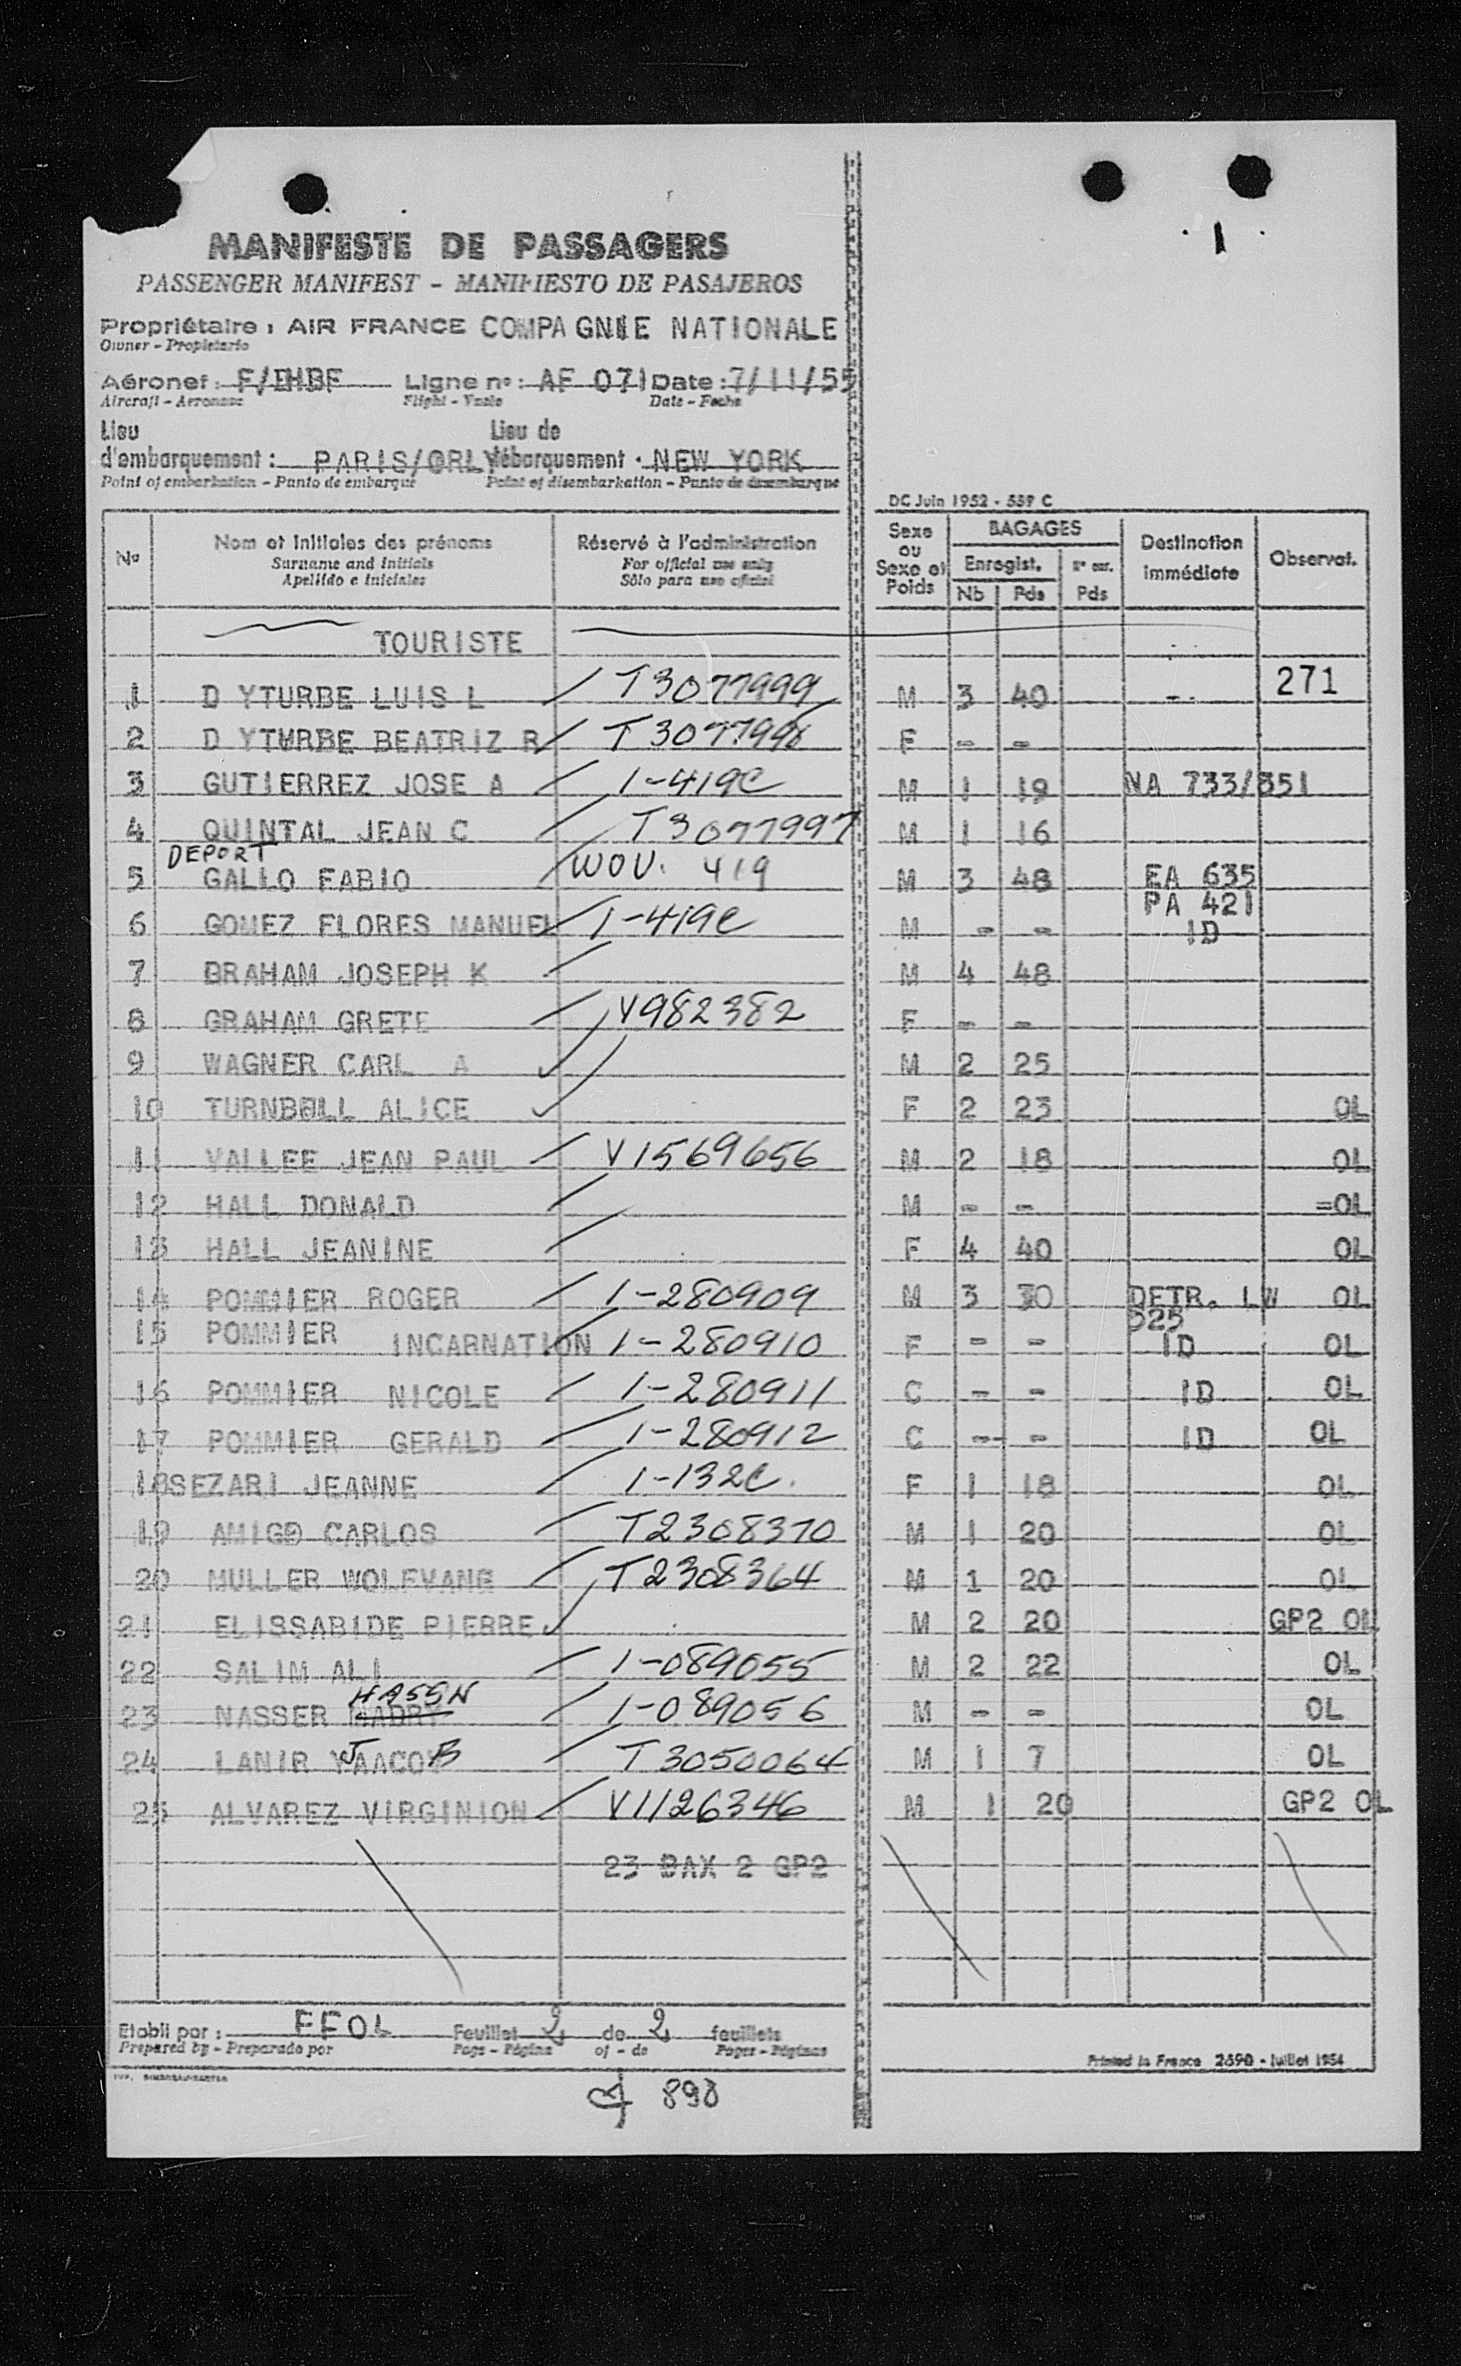 MANIFESTE DE PASSAGERS
PASSENGER MANIFEST - MANIFIESTO DE PASAJEROS
Propriétaire : AIR FRANCE COMPAGNIE NATIONALE
Owner - Propietario
Aéronef : F/BHBF Ligne nº : AF 071 Date : 7/11/55
Aircraft - Aeronave Flight - Vuelo Date - Fecha
Lieu Lieu de
d'embarquement : PARIS/ORLY débarquement : NEW YORK
Point of embarkation - Punto de embarque Point of disembarkation - Punto de desembarque
DC Juin 1952 - 559 C
Nº Nom et initiales des prénoms Réservé à l'administration Sexe ou Sexe et Poids BAGAGES Destination immédiate Observat.
Surname and initials For official use only Enregist. Nº enr.
Apellido e iniciales Sólo para uso oficial Nb Pds Pds
TOURISTE
1 D YTURBE LUIS L T3077999 M 3 40 -. 271
2 D YTURBE BEATRIZ R T3077998 F - -
3 GUTIERREZ JOSE A 1-419C M 1 19 NA 733/851
4 QUINTAL JEAN C T3077997 M 1 16
DEPORT
5 GALLO FABIO WOV. 419 M 3 48 EA 635
PA 421
6 GOMEZ FLORES MANUEL 1-419C M - - ID
7 GRAHAM JOSEPH K M 4 48
8 GRAHAM GRETE V982382 F - -
9 WAGNER CARL A M 2 25
10 TURNBULL ALICE F 2 23 OL
11 VALLEE JEAN PAUL V1569656 M 2 18 OL
12 HALL DONALD M - - =OL
13 HALL JEANINE F 4 40 OL
14 POMMIER ROGER 1-280909 M 3 30 DETR. LW OL
525
15 POMMIER INCARNATION 1-280910 F - - ID OL
16 POMMIER NICOLE 1-280911 C - - ID OL
17 POMMIER GERALD 1-280912 C -- - ID OL
18 SEZARI JEANNE 1-132C. F 1 18 OL
19 AMIGO CARLOS T2308370 M 1 20 OL
20 MULLER WOLFVANG T2308364 M 1 20 OL
21 ELISSABIDE PIERRE M 2 20 GP2 OL
22 SALIM ALI 1-089055 M 2 22 OL
HASSN
23 NASSER BADRY 1-089056 M - - OL
24 LANIR JAACOB T3050064 M 1 7 OL
25 ALVAREZ VIRGINION V1126346 M 1 20 GP2 OL
23 BAX 2 GP2
Etabli par : FFOL Feuillet 2 de 2 feuillets
Prepared by - Preparado por Page - Página of - de Pages - Páginas
Printed in France 2690 - Juillet 1954
890